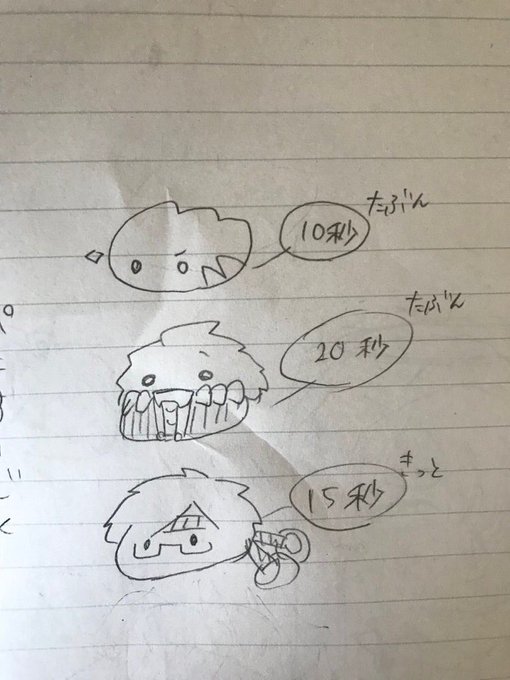 たぶん
10秒
たぶん
20秒
きっと
15秒